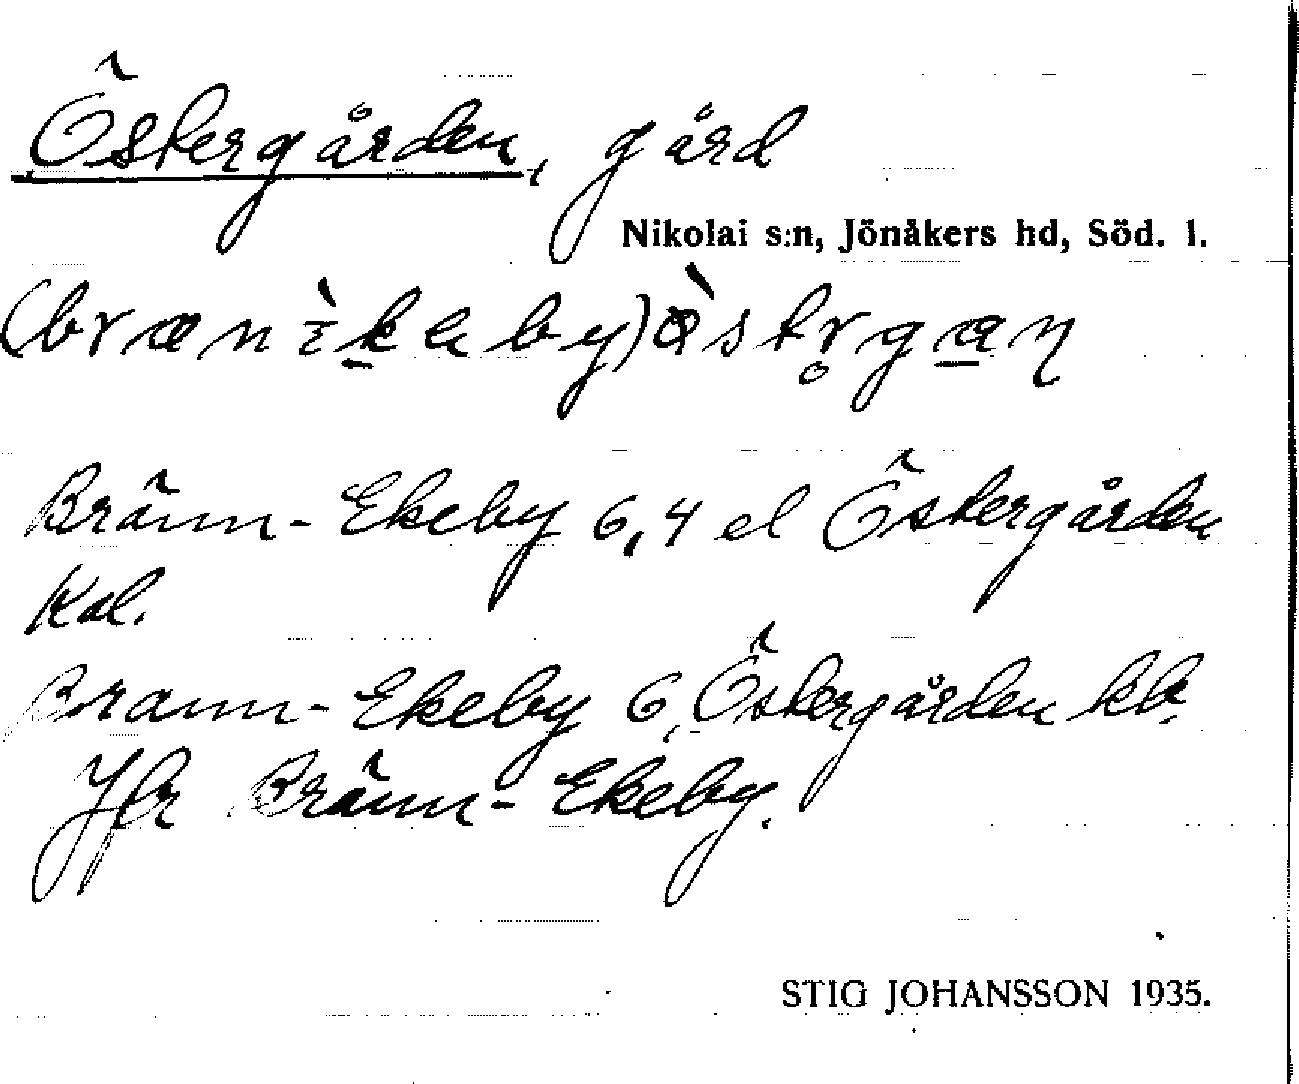 Östergården, gård
Nikolai s:n, Jönåkers hd, Söd. l.
Bränn-Ekeby 6,4 el Östergården
Kal.
Bränn-Ekeby 6, Östergården kb.
Jfr Bränn-Ekeby.
STIG JOHANSSON 1935.